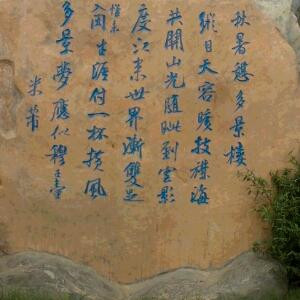 秋暑憩多景樓
縱目天容曠披襟海
共開山光隨眺到雲影
度江来世界漸雙足
生涯付一杯横風
多景夢應似穆王臺
米芾